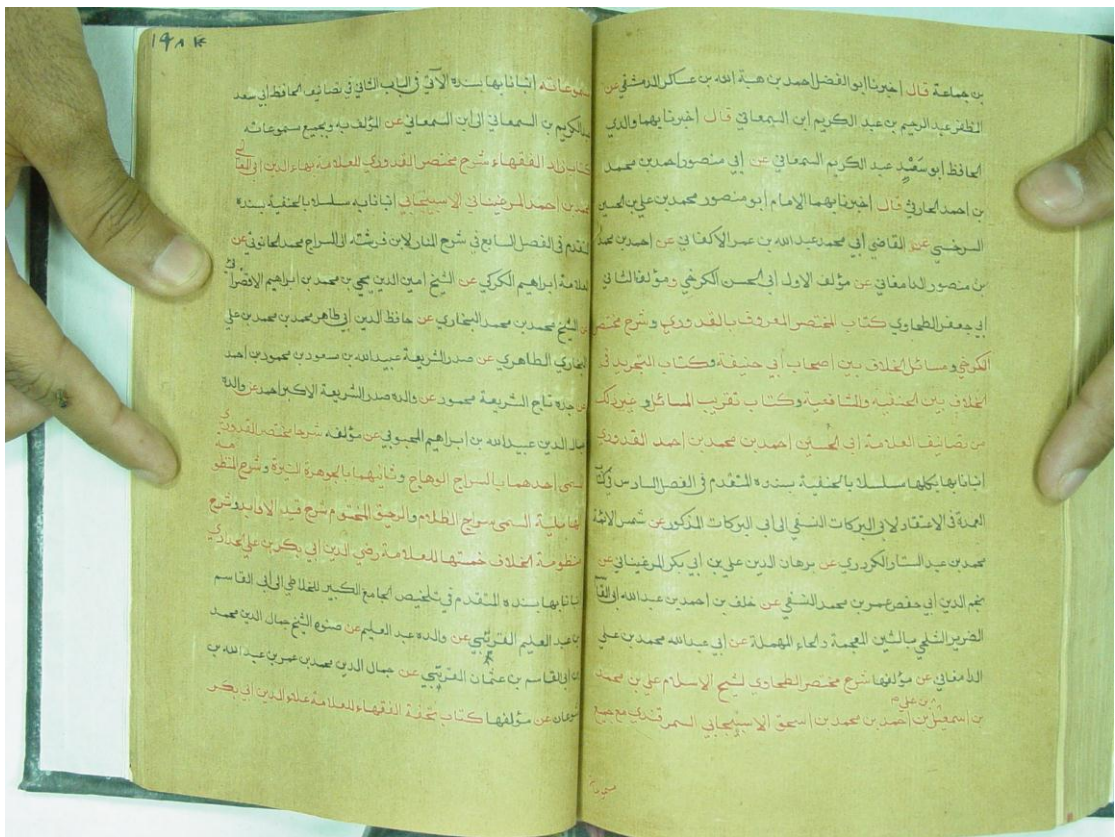 بن جماعة قال اخبرنا ابو الفضل احمد بن هبة الله بن عساكر الدمشقي عن
المظفر عبد الرحيم بن عبد الكريم ابن السمعاني قال اخبرنا بهما والدي
الحافظ ابو سعيد عبد الكريم السمعاني عن ابي منصور احمد بن محمد
بن احمد الحارثي قال اخبرنا بهما الامام أبو منصور محمد بن علي بن الحسين
السرخسي عن القاضي أبي محمد عبد الله بن عمر الاكفاني عن احمد بن محمد
بن منصور الدامغاني عن مؤلف الاول ابي الحسن الكرخي ومؤلف الثاني
ابي جعفر الطحاوي كتاب المختصر المعروف بالقدوري وشرح مختصر
الكرخي ومسائل الخلاف بين اصحاب أبي حنيفة وكتاب التجريد في
الخلاف بين الحنفية والشافعية وكتاب تقريب المسائل وغير ذلك
من تصانيف العلامة ابي الحسين احمد بن محمد بن احمد القدوري
انبانا بها كلها سلسلا بالحنفية بسنده المتقدم في الفصل السادس في
العمدة في الاعتقاد لابي البركات النسفي الى أبي البركات المذكور عن شمس الائمة
محمد بن عبد الستار الكردري عن برهان الدين علي بن أبي بكر المرغيناني عن
نجم الدين أبي حفص عمر بن محمد النسفي عن خلف بن احمد بن عبد الله ابي القا
الضرير الشلحي بالشين المعجمة والحاء المهملة عن أبي عبد الله محمد بن علي
الدامغاني عن مؤلفها شرح مختصر الطحاوي لشيخ الاسلام علي بن محمد
بن علي
بن اسمعيل بن احمد بن محمد بن اسحق الاسبيجابي السمرقندي مع جميع
١٩٨
انبانا بها بسنده الآتي في الباب الثاني في تصانيف الحافظ ابي سعد
عبد الكريم بن السمعاني الى ابن السمعاني عن المؤلف به وبجميع سموعاته
كتاب زاد الفقهاء شرح مختصر القدوري للعلامة بهاء الدين ابي المعالي
محمد بن احمد المرغيناني الاسبيجابي انبانا به سلسلا بالحنفية بسنده
المتقدم في الفصل السابع في شرح المنار لابن فرشته الى السراج محمد الحانوتي عن
العلامة ابراهيم الكركي عن الشيخ امين الدين يحيى بن محمد بن ابراهيم الاقصرائي
عن الشيخ محمد بن محمد البخاري عن حافظ الدين ابي طاهر محمد بن محمد بن علي
البخاري الطاهري عن صدر الشريعة عبيد الله بن سعود بن محمود بن احمد
عن جده تاج الشريعة محمود عن والده صدر الشريعة الاكبر احمد عن والده
جمال الدين عبيد الله بن ابراهيم المحبوبي عن مؤلفه شرحا مختصر القدوري
احدهما بالسراج الوهاج وثانيهما بالجوهرة النيرة وشرح المنظومة
السمى سراج الظلام والرحيق المختوم شرح قيد الاوابد وشرح
منظومة الخلاف خمستها للعلامة رضي الدين ابي بكر بن علي الحدادي
انبانا بها بسنده المتقدم في تلخيص الجامع الكبير للخلاطي الى أبي القاسم
بن عبد العليم القربتي عن والده عبد العليم عن صنوه الشيخ جمال الدين محمد
بن ابي القاسم بن عثمان القربتي عن جمال الدين محمد بن عمر بن عبد الله بن
عن مؤلفها كتاب تحفة الفقهاء للعلامة علاء الدين ابي بكر